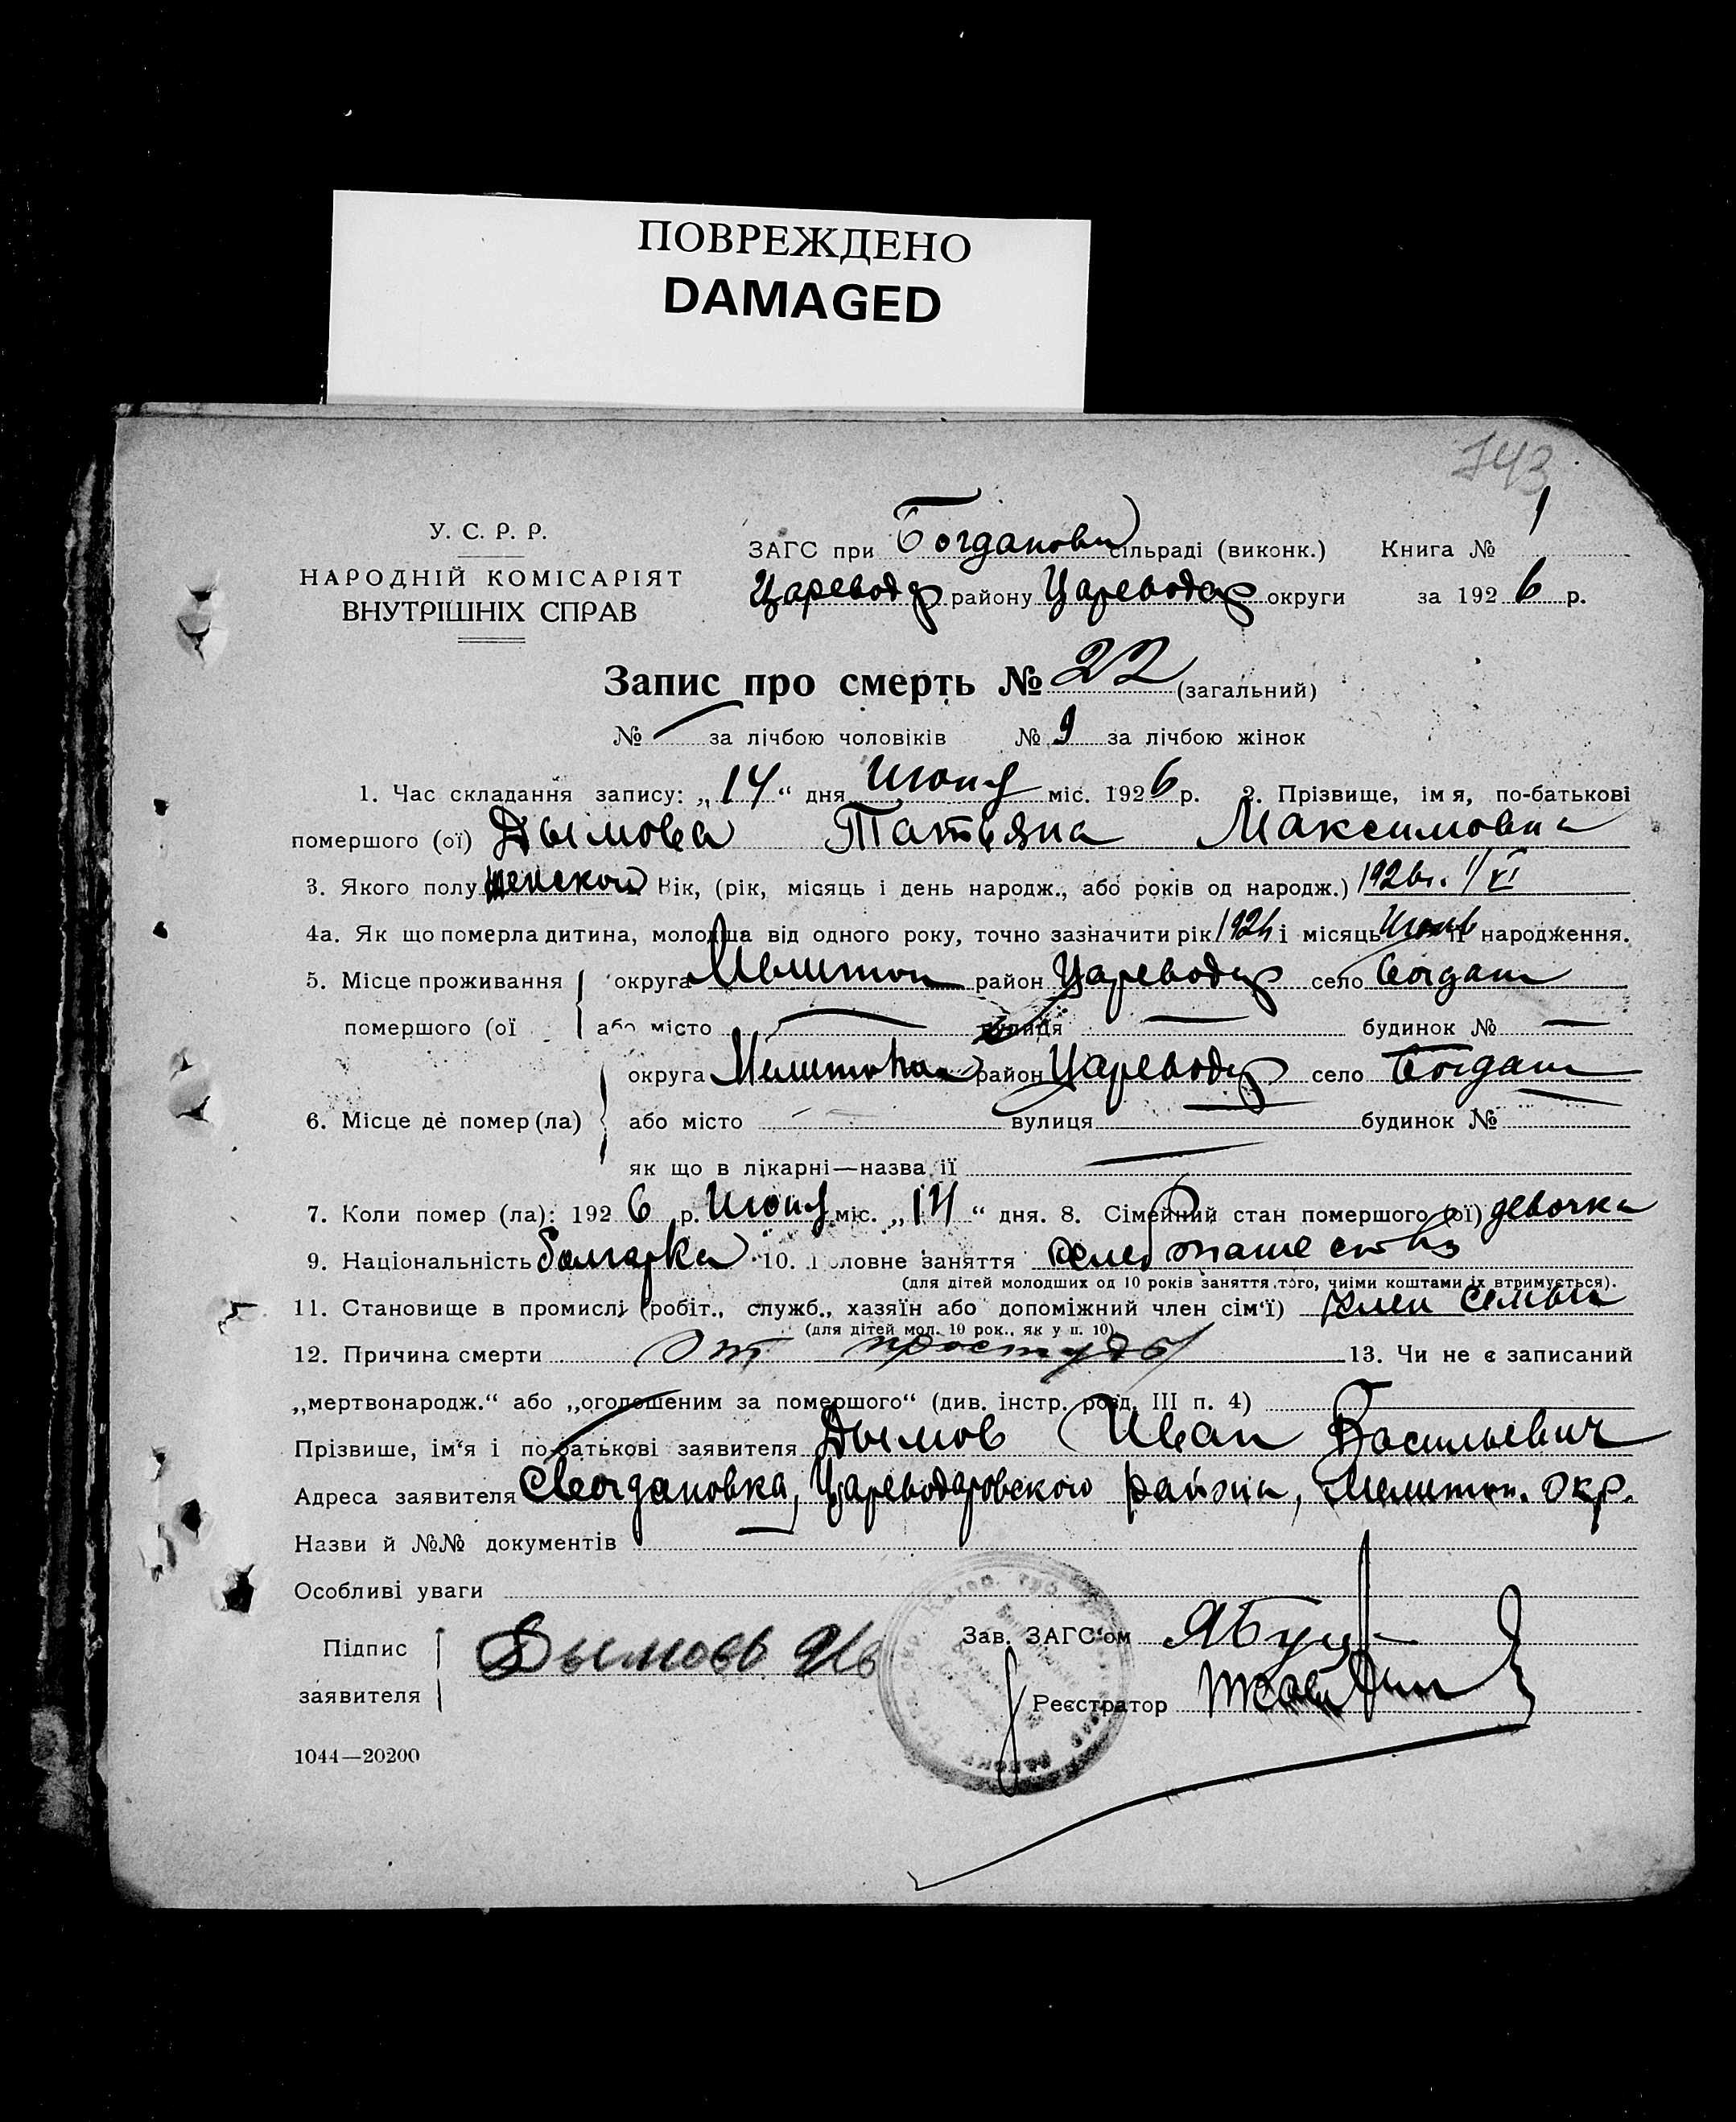 ПОВРЕЖДЕНО
DAMAGED
143
У. С. Р. Р.
НАРОДНІЙ КОМІСАРІЯТ
ВНУТРІШНІХ СПРАВ
ЗАГС при Богданови сільраді (виконк.) Книга № 1
Цареводар району Цареводар округи за 1926 р.
Запис про смерть № 22 (загальний)
№ — за лічбою чоловіків № 9 за лічбою жінок
1. Час складання запису: „14“ дня Июня міс. 1926 р. 2. Прізвище, ім я, по-батькові
помершого (ої) Дымова Татьяна Максимовна
3. Якого полу женского Вік, (рік, місяць і день народж., або років од народж.) 1926г. 1/VI
4а. Як що померла дитина, молодша від одного року, точно зазначити рік 1926 і місяць Июнь її народження.
5. Місце проживання округа Мелитоп район Цареводар село Богдан
помершого (ої або місто — вулиця — будинок № —
округа Мелитопол район Цареводар село Богдан
6. Місце де помер (ла) або місто вулиця будинок №
як що в лікарні—назва її —
7. Коли помер (ла): 1926 р. Июня міс. „14“ дня. 8. Сімейний стан помершого (ої) девочка
9. Національність болгарка 10. Головне заняття хлебопашество
(для дітей молодших од 10 років заняття того, чиїми коштами їх втримується).
11. Становище в промислі (робіт., служб., хазяїн або допоміжний член сім'ї) член семьи
(для дітей мол. 10 рок., як у п. 10)
12. Причина смерти От простуды 13. Чи не є записаний
„мертвонародж.“ або „оголошеним за помершого“ (див. інстр. розд. III п. 4)
Прізвише, ім'я і по-батькові заявителя Дымов Иван Васильевич
Адреса заявителя с Богдановка, Цареводаровского района, Мелитоп. окр.
Назви й №№ документів
Особливі уваги
Підпис
заявителя
Дымовь Ив
Зав. ЗАГС'ом
Реєстратор
1044—20200